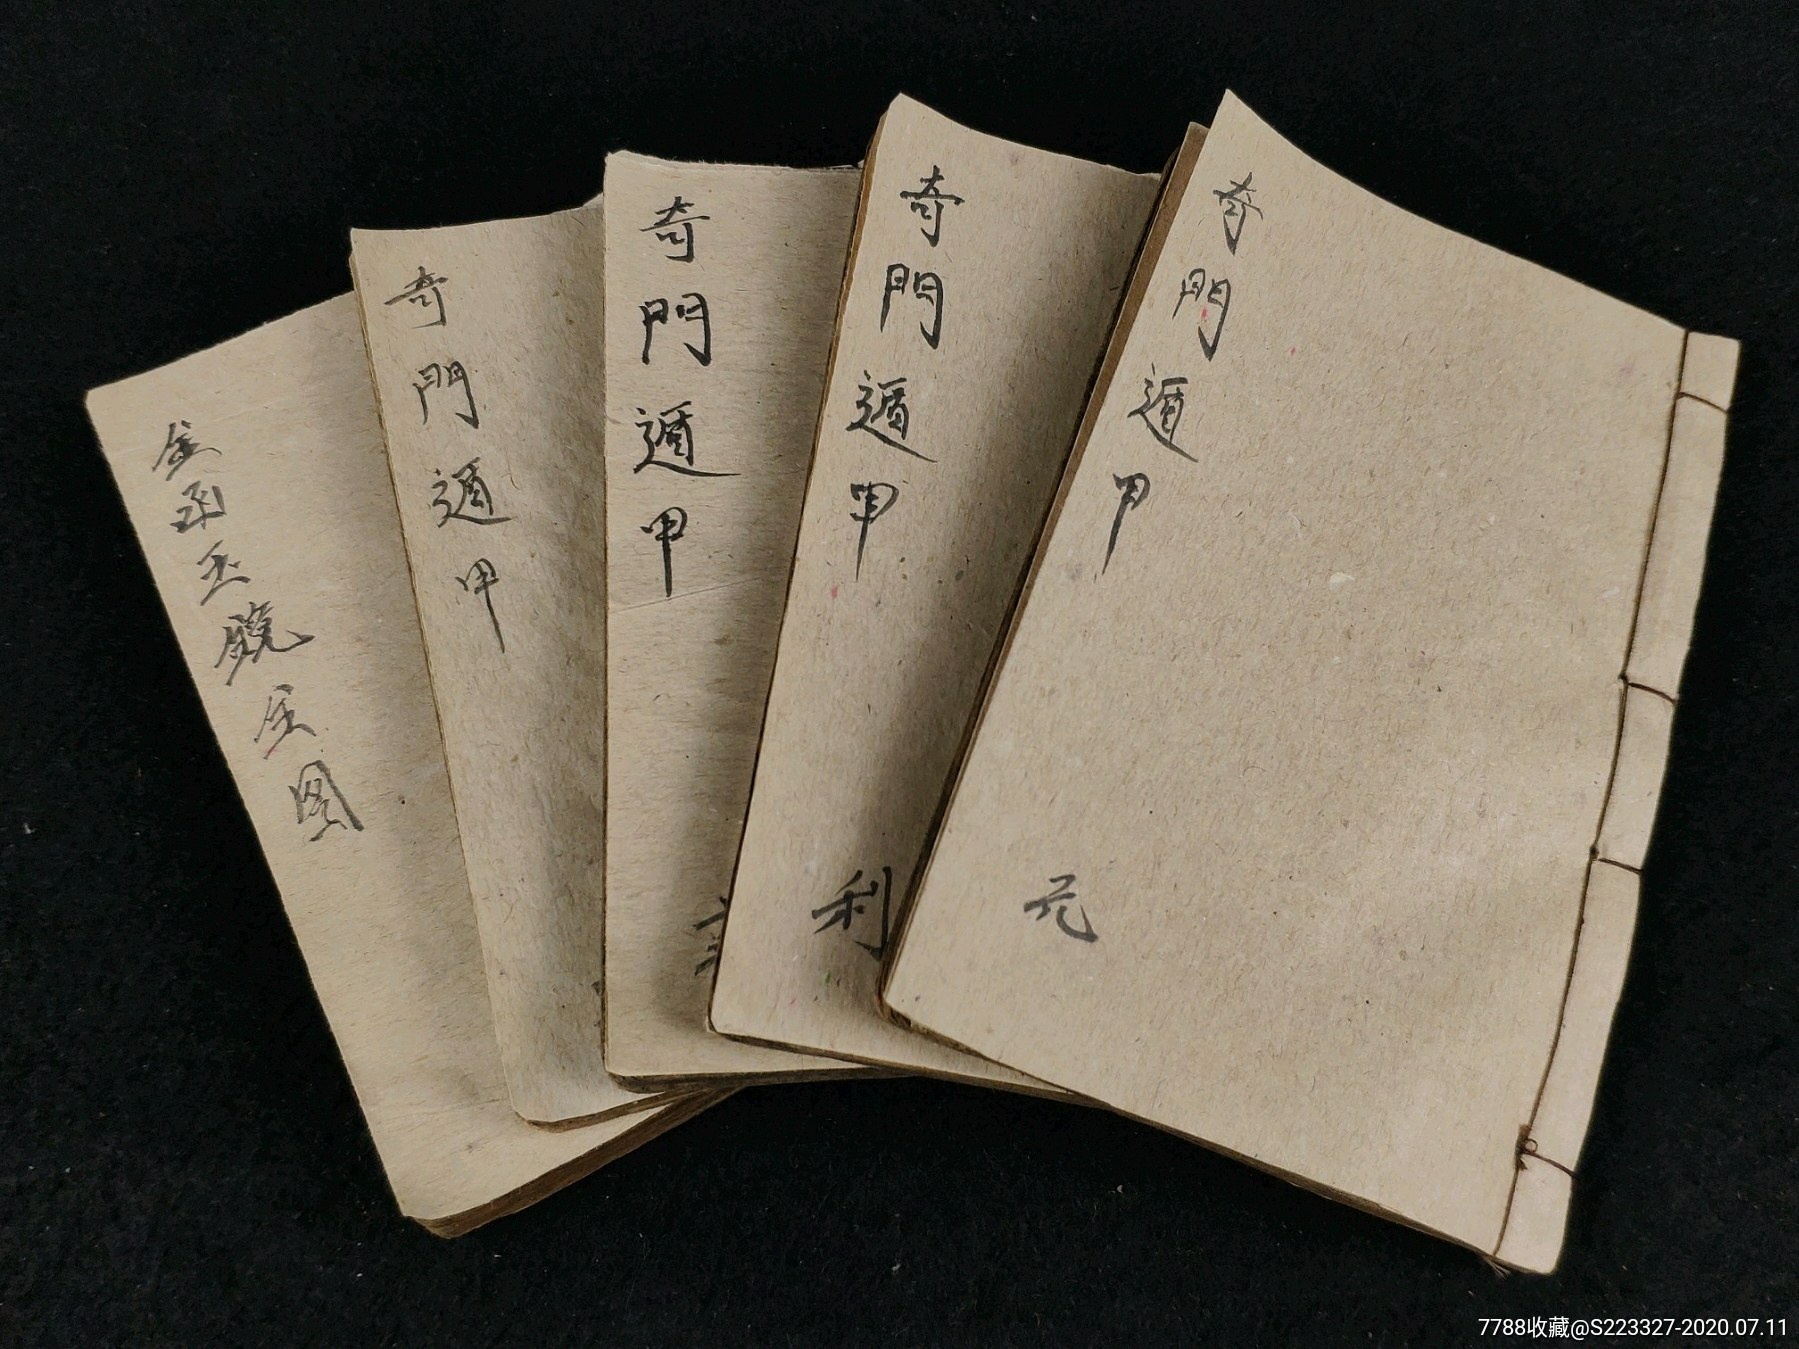 奇門遁甲
元
奇門遁甲
利
奇門遁甲
奇門遁甲
金函玉鏡全图
7788收藏@S223327-2020.07.11